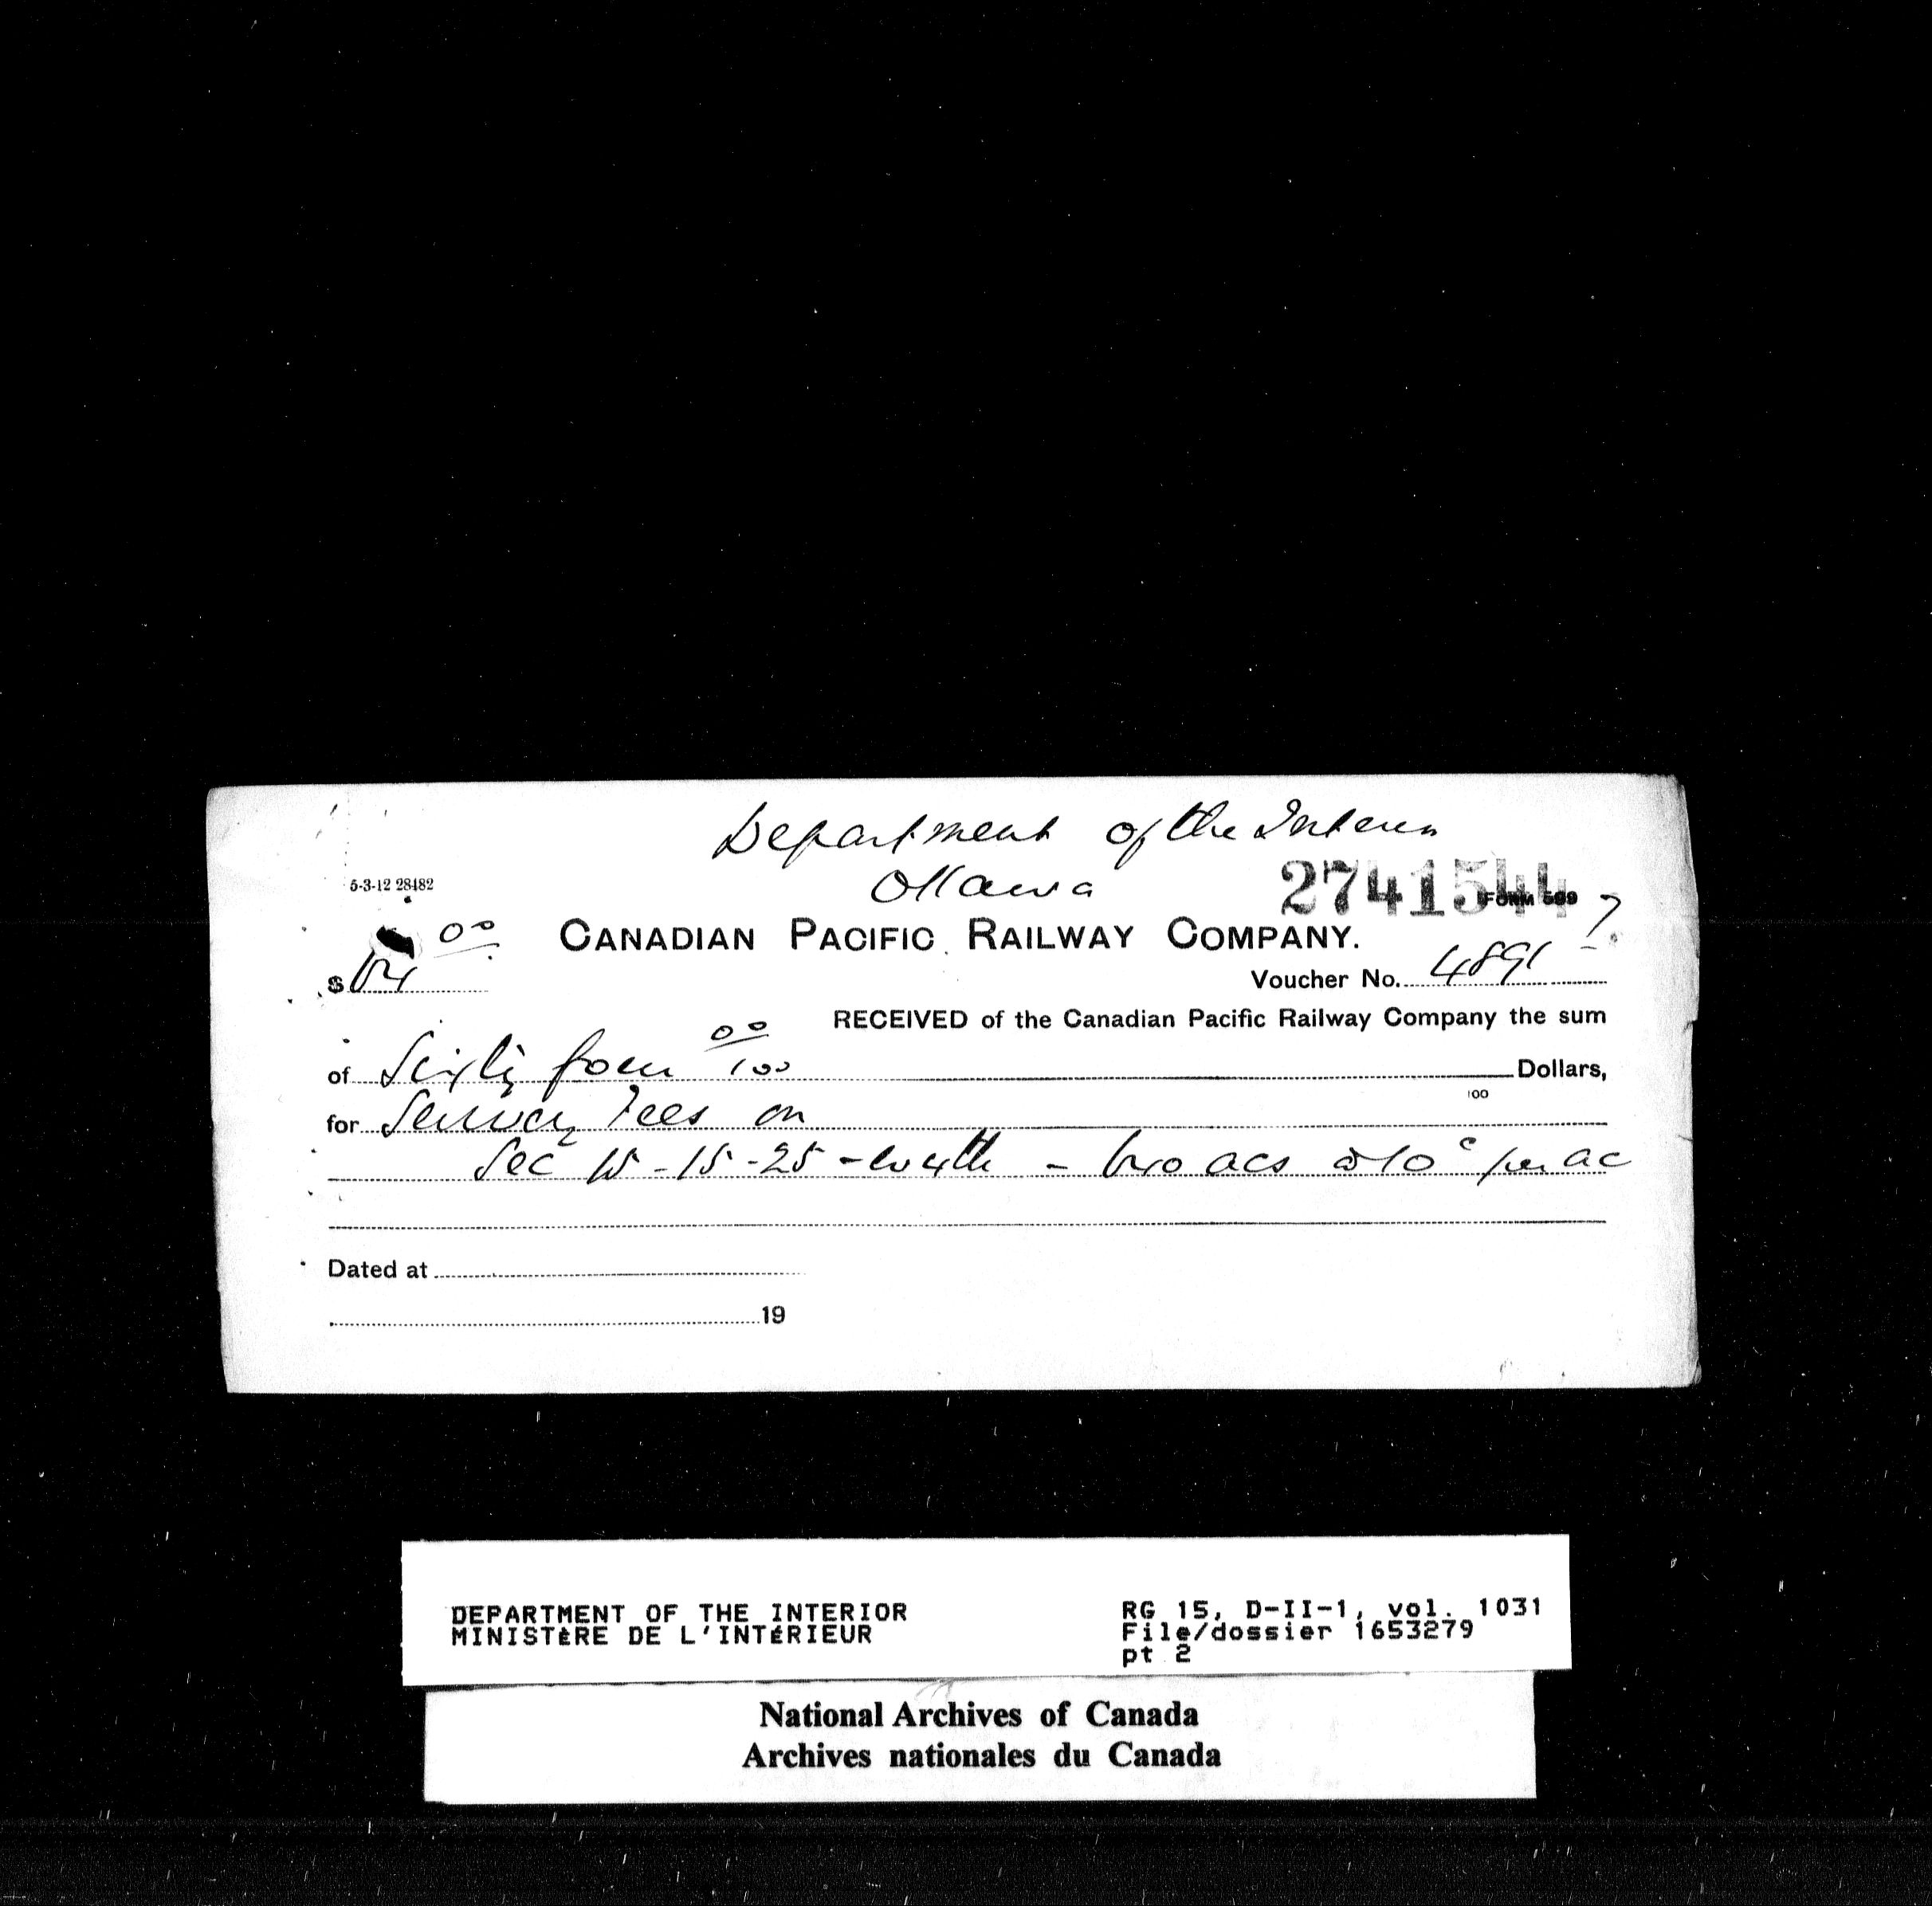 Department of the Interior
Ottawa
5-3-12 28482
2741544
FORM 599
CANADIAN PACIFIC RAILWAY COMPANY.
$ 64 00
Voucher No. 4891
RECEIVED of the Canadian Pacific Railway Company the sum
of Sixty four 00/100 Dollars,
100
for Survey Fees on
Sec 15-15-25-W 4th - 640 acs @ 10c per ac
Dated at
19
DEPARTMENT OF THE INTERIOR
MINISTÈRE DE L'INTÉRIEUR
RG 15, D-II-1, vol. 1031
File/dossier 1653279
pt 2
National Archives of Canada
Archives nationales du Canada